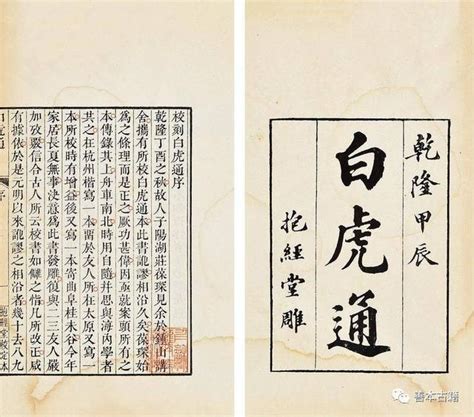 乾隆甲辰
白虎通
抱經堂雕
校刻白虎通序
乾隆丁酉之秋故人子陽湖莊葆琛見余於鍾山講
舍攜有所校白虎通本此書訛謬相沿久矣葆琛始
為之條理而是正之厥功甚偉因亟就案頭所有之
本傳錄其上舟車南北時用自隨并思與海內學者
共之在杭州楷寫一本留於友人所在太原又寫一
本所校時有增益後又寫一本寄曲阜桂未谷今年
家居長夏無事決意為此書發雕復與二三友人嚴
加攷覈信合古人所云校書如讎之恉凡所改正咸
有據依於是元明以來訛謬之相沿者幾十去八九
白虎通 序
善本古籍